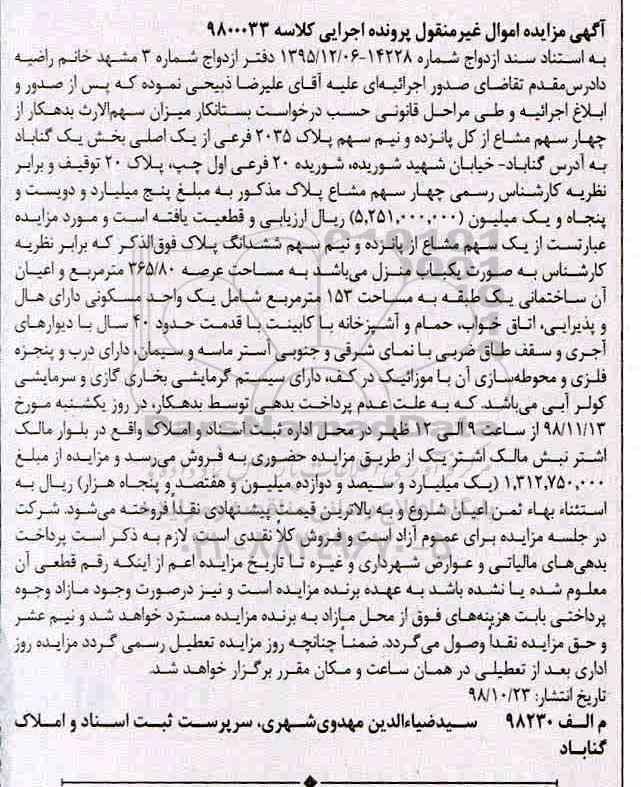 آگهی مزایده اموال غیرمنقول پرونده اجرایی کلاسه ۹۸۰۰۰۳۳
به استناد سند ازدواج شماره ۱۴۲۲۸-۱۳۹۵/۱۲/۰۶ دفتر ازدواج شماره ۳ مشهد خانم راضیه
دادرس‌مقدم تقاضای صدور اجرائیه‌ای علیه آقای علیرضا ذبیحی نموده که پس از صدور و
ابلاغ اجرائیه و طی مراحل قانونی حسب درخواست بستانکار میزان سهم‌الارث بدهکار از
چهار سهم مشاع از کل پانزده و نیم سهم پلاک ۲۰۳۵ فرعی از یک اصلی بخش یک گناباد
به آدرس گناباد- خیابان شهید شوریده، شوریده ۲۰ فرعی اول چپ، پلاک ۲۰ توقیف و برابر
نظریه کارشناس رسمی چهار سهم مشاع پلاک مذکور به مبلغ پنج میلیارد و دویست و
پنجاه و یک میلیون (۵,۲۵۱,۰۰۰,۰۰۰) ریال ارزیابی و قطعیت یافته است و مورد مزایده
عبارتست از یک سهم مشاع از پانزده و نیم سهم ششدانگ پلاک فوق‌الذکر که برابر نظریه
کارشناس به صورت یکباب منزل می‌باشد به مساحت عرصه ۳۶۵/۸۰ مترمربع و اعیان
آن ساختمانی یک طبقه به مساحت ۱۵۳ مترمربع شامل یک واحد مسکونی دارای هال
و پذیرایی، اتاق خواب، حمام و آشپزخانه با کابینت با قدمت حدود ۴۰ سال با دیوارهای
آجری و سقف طاق ضربی با نمای شرقی و جنوبی آستر ماسه و سیمان، دارای درب و پنجره
فلزی و محوطه‌سازی آن با موزائیک در کف، دارای سیستم گرمایشی بخاری گازی و سرمایشی
کولر آبی می‌باشد. که به علت عدم پرداخت بدهی توسط بدهکار، در روز یکشنبه مورخ
۹۸/۱۱/۱۳ از ساعت ۹ الی ۱۲ ظهر در محل اداره ثبت اسناد و املاک واقع در بلوار مالک
اشتر نبش مالک اشتر یک از طریق مزایده حضوری به فروش می‌رسد و مزایده از مبلغ
۱,۳۱۲,۷۵۰,۰۰۰ (یک میلیارد و سیصد و دوازده میلیون و هفتصد و پنجاه هزار) ریال به
استثناء بهاء ثمن اعیان شروع و به بالاترین قیمت پیشنهادی نقداً فروخته می‌شود. شرکت
در جلسه مزایده برای عموم آزاد است و فروش کلاً نقدی است. لازم به ذکر است پرداخت
بدهی‌های مالیاتی و عوارض شهرداری و غیره تا تاریخ مزایده اعم از اینکه رقم قطعی آن
معلوم شده یا نشده باشد به عهده برنده مزایده است و نیز درصورت وجود مازاد وجوه
پرداختی بابت هزینه‌های فوق از محل مازاد به برنده مزایده مسترد خواهد شد و نیم عشر
و حق مزایده نقداً وصول می‌گردد. ضمناً چنانچه روز مزایده تعطیل رسمی گردد مزایده روز
اداری بعد از تعطیلی در همان ساعت و مکان مقرر برگزار خواهد شد.
تاریخ انتشار: ۹۸/۱۰/۲۳
م الف ۹۸۲۳۰ سیدضیاءالدین مهدوی‌شهری، سرپرست ثبت اسناد و املاک
گناباد